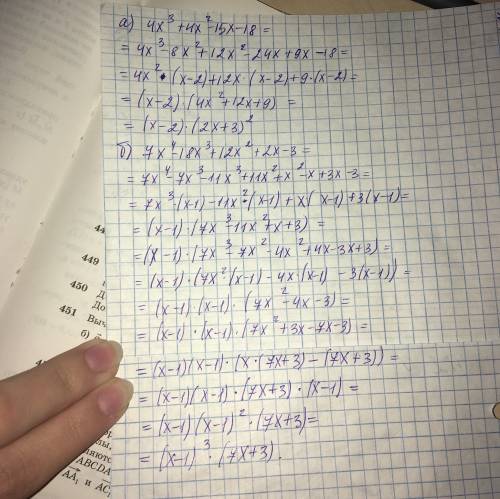 а) 4x³+4x²-15x-18=
=4x³-8x²+12x²-24x+9x-18=
=4x²·(x-2)+12x·(x-2)+9·(x-2)=
=(x-2)·(4x²+12x+9)=
=(x-2)·(2x+3)²
б) 7x⁴-18x³+12x²+2x-3=
=7x⁴-7x³-11x³+11x²+x²-x+3x-3=
=7x³·(x-1)-11x²·(x-1)+x(x-1)+3(x-1)=
=(x-1)·(7x³-11x²+x+3)=
=(x-1)·(7x³-7x²-4x²+4x-3x+3)=
=(x-1)·(7x²(x-1)-4x·(x-1)-3(x-1))=
=(x-1)(x-1)·(7x²-4x-3)=
=(x-1)·(x-1)·(7x²+3x-7x-3)=
=(x-1)(x-1)·(x·(7x+3)-(7x+3))=
=(x-1)(x-1)·(7x+3)·(x-1)=
=(x-1)(x-1)²·(7x+3)=
=(x-1)³·(7x+3).
44
449
450 Д
До
451 Выч
б)
ABCDA
AA₁ и AC